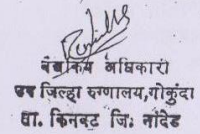 वैद्यकिय अधिकारी
उप जिल्हा रुग्णालय,गोकुंदा
ता. किनवट जि. नांदेड